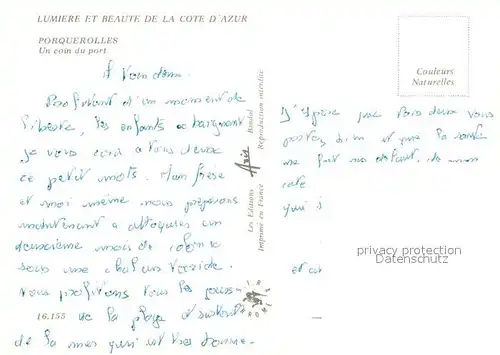 LUMIERE ET BEAUTE DE LA COTE D'AZUR
PORQUEROLLES
Un coin du port
A vous deux.
Profitant d'un moment de
liberté, les enfants se baignent
je vous écris a vous deux
ce petit mots. Mon frese
et moi même nous préparons
maintenant a attaquer un
deuxieme mois de colonie
sous une chaleur torride.
Nous profitons tous les jours
de la plage et surtout
de la mer qui est très bonne.
16.155
Les Editions Aris Bandol
Imprimé en France Reproduction interdite
Couleurs
Naturelles
J'espère que vous deux vous
portez bien et que la santé
ne fait pas défaut. de mon
coté
qui s
et
privacy protection
Datenschutz